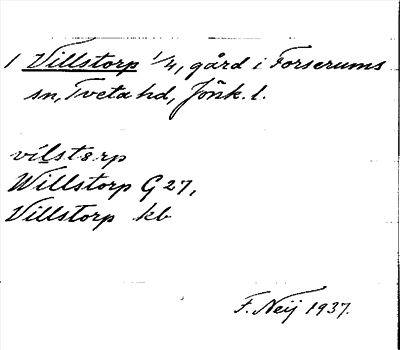 1 Villstorp 1/4, gård i Forserums
sn, Tveta hd, Jönk. l.
vilstərp
Willstorp G 27,
Villstorp kb
F. Neij 1937.